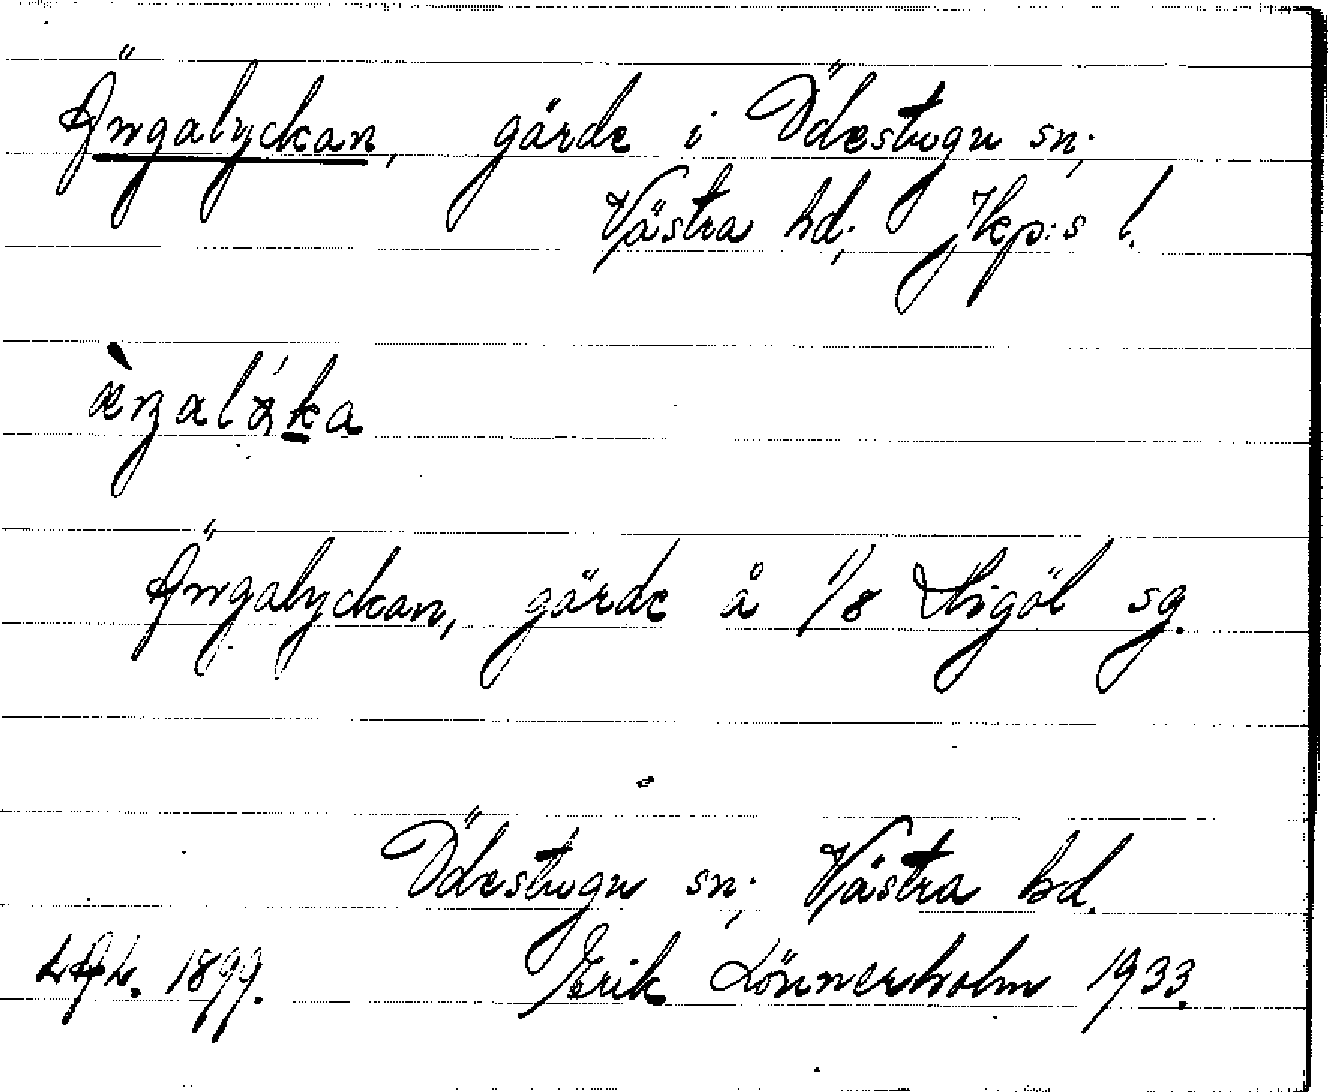 Ängalyckan, gärde i Ödestugu sn;
Västra hd; Jkp:s l.
Ängalyckan, gärde å 1/8 Stigöl sg.
Ödestugu sn; Västra hd.
1899. Erik Lönnerholm 1933.